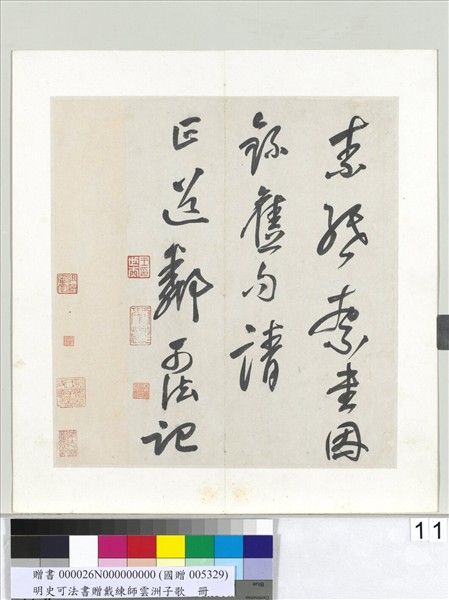 素紙索書因
錄舊句請
正道鄰可法記
11
贈書 000026N000000000 (國贈 005329)
明史可法書贈戴練師雲洲子歌　冊